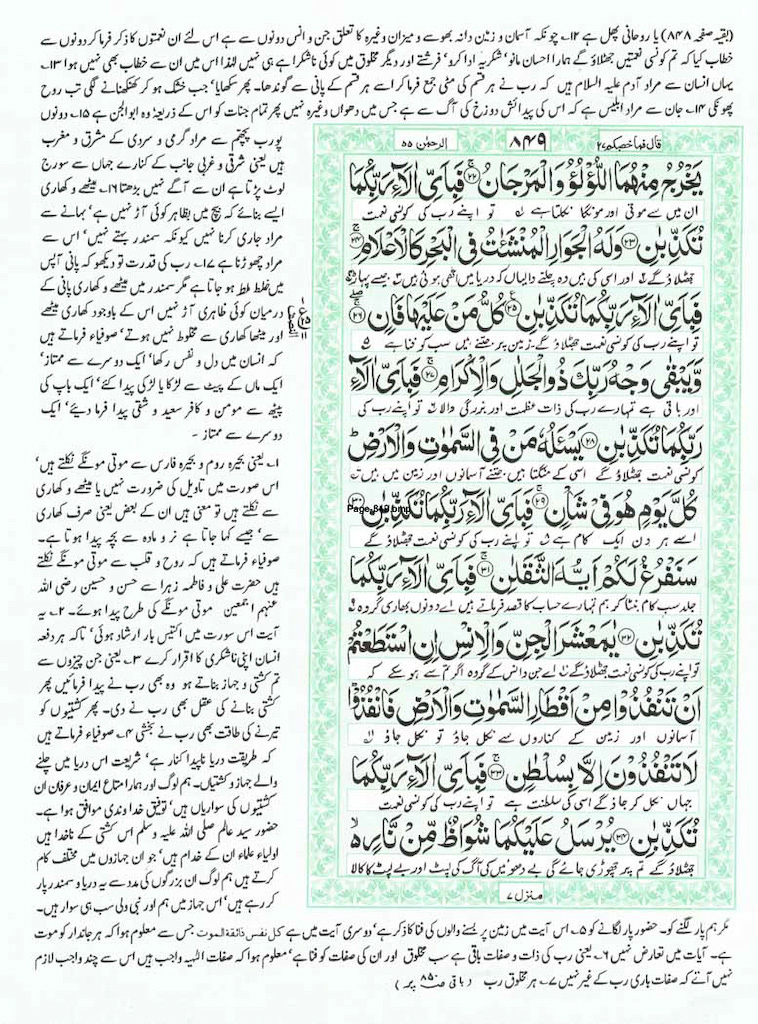 (بقیہ صفحہ ۸۴۸) یا روحانی پھل ہے ۱۲۔ چونکہ آسمان و زمین دانہ بھوسے و میزان وغیرہ کا تعلق جن و انس دونوں سے ہے اس لئے ان نعمتوں کا ذکر فرما کر دونوں سے
خطاب کیا کہ تم کونسی نعمتیں جھٹلاؤ گے ہمارا احسان مانو' شکریہ ادا کرو' فرشتے اور دیگر مخلوق میں کوئی ناشکرا ہے ہی نہیں لہٰذا اس میں ان سے خطاب بھی نہیں ہوا ۱۳۔
یہاں انسان سے مراد آدم علیہ السلام ہیں کہ رب نے ہر قسم کی مٹی جمع فرما کر اسے ہر قسم کے پانی سے گوندھا۔ پھر سکھایا' جب خشک ہو کر کھنکھنانے لگی تب روح
پھونکی ۱۴۔ جان سے مراد ابلیس ہے کہ اس کی پیدائش دوزخ کی آگ سے ہے جس میں دھواں وغیرہ نہیں پھر تمام جنات کو اس کے ذریعہ وہ ابوالجن ہے ۱۵۔ دونوں
قال فما خطبکم ۲۷ ۸۴۹ الرحمٰن ۵۵
يَخْرُجُ مِنْهُمَا اللُّؤْلُؤُ وَالْمَرْجَانُ ﴿۲۲﴾ فَبِاَيِّ اٰلَاۤءِ رَبِّكُمَا
ان میں سے موتی اور مونگا نکلتا ہے تو اپنے رب کی کونسی نعمت
تُكَذِّبٰنِ ﴿۲۳﴾ وَلَهُ الْجَوَارِ الْمُنْشَـٰٔتُ فِى الْبَحْرِ كَالْاَعْلَامِ ﴿۲۴﴾
جھٹلاؤ گے اور اسی کی ہیں وہ چلنے والیاں کہ دریا میں اٹھی ہوئی ہیں جیسے پہاڑ
فَبِاَيِّ اٰلَاۤءِ رَبِّكُمَا تُكَذِّبٰنِ ﴿۲۵﴾ كُلُّ مَنْ عَلَيْهَا فَانٍ ﴿۲۶﴾
تو اپنے رب کی کونسی نعمت جھٹلاؤ گے۔ زمین پر جتنے ہیں سب کو فنا ہے
وَّيَبْقٰى وَجْهُ رَبِّكَ ذُو الْجَلٰلِ وَالْاِكْرَامِ ﴿۲۷﴾ فَبِاَيِّ اٰلَاۤءِ
اور باقی ہے تمہارے رب کی ذات عظمت اور بزرگی والا تو اپنے رب کی
رَبِّكُمَا تُكَذِّبٰنِ ﴿۲۸﴾ يَسْـَٔلُهٗ مَنْ فِى السَّمٰوٰتِ وَالْاَرْضِ
کونسی نعمت جھٹلاؤ گے اسی کے منگتا ہیں جتنے آسمانوں اور زمین میں ہیں
كُلَّ يَوْمٍ هُوَ فِىْ شَاْنٍ ﴿۲۹﴾ فَبِاَيِّ اٰلَاۤءِ رَبِّكُمَا تُكَذِّبٰنِ ﴿۳۰﴾
Page 849.bmp
اسے ہر دن ایک کام ہے تو اپنے رب کی کونسی نعمت جھٹلاؤ گے
سَنَفْرُغُ لَكُمْ اَيُّهَ الثَّقَلٰنِ ﴿۳۱﴾ فَبِاَيِّ اٰلَاۤءِ رَبِّكُمَا
جلد سب کام نبٹا کر ہم تمہارے حساب کا قصد فرماتے ہیں اے دونوں بھاری گروہ
تُكَذِّبٰنِ ﴿۳۲﴾ يٰمَعْشَرَ الْجِنِّ وَالْاِنْسِ اِنِ اسْتَطَعْتُمْ
تو اپنے رب کی کونسی نعمت جھٹلاؤ گے اے جن و انس کے گروہ اگر تم سے ہو سکے کہ
اَنْ تَنْفُذُوْا مِنْ اَقْطَارِ السَّمٰوٰتِ وَالْاَرْضِ فَانْفُذُوْا
آسمانوں اور زمین کے کناروں سے نکل جاؤ تو نکل جاؤ
لَا تَنْفُذُوْنَ اِلَّا بِسُلْطٰنٍ ﴿۳۳﴾ فَبِاَيِّ اٰلَاۤءِ رَبِّكُمَا
جہاں نکل کر جاؤ گے اسی کی سلطنت ہے تو اپنے رب کی کونسی نعمت
تُكَذِّبٰنِ ﴿۳۴﴾ يُرْسَلُ عَلَيْكُمَا شُوَاظٌ مِّنْ نَّارٍ
جھٹلاؤ گے تم پر چھوڑی جائے گی بے دھوئیں کی آگ کی لپٹ اور بے لپٹ کا کالا
منزل ۷
پورب پچھم سے مراد گرمی و سردی کے مشرق و مغرب
ہیں یعنی شرقی و غربی جانب کے کنارے جہاں سے سورج
لوٹ پڑتا ہے ان سے آگے نہیں بڑھتا ۱۶۔ میٹھے و کھاری
ایسے بنائے کہ بیچ میں بظاہر کوئی آڑ نہیں ہے' بہانے سے
مراد جاری کرنا نہیں کیونکہ سمندر بہتے نہیں' اس سے
مراد چھوڑنا ہے ۱۷۔ رب کی قدرت تو دیکھو کہ پانی آپس
میں خلط ملط ہو جاتا ہے مگر سمندر میں میٹھے و کھاری پانی کے
درمیان کوئی ظاہری آڑ نہیں اس کے باوجود کھاری میٹھے
اور میٹھا کھاری سے مخلوط نہیں ہوتے' صوفیاء فرماتے ہیں
کہ انسان میں دل و نفس رکھا' ایک دوسرے سے ممتاز'
ایک ماں کے پیٹ سے لڑکا یا لڑکی پیدا کئے' ایک باپ کی
پیٹھ سے مومن و کافر سعید و شقی پیدا فرما دیئے' ایک
دوسرے سے ممتاز۔
۱۔ یعنی بحیرہ روم و بحیرہ فارس سے موتی مونگے نکلتے ہیں'
اس صورت میں تاویل کی ضرورت نہیں یا میٹھے و کھاری
سے نکلتے ہیں تو معنی ہیں ان کے بعض یعنی صرف کھاری
سے' جیسے کہا جاتا ہے نر و مادہ سے بچہ پیدا ہوتا ہے۔
صوفیاء فرماتے ہیں کہ روح و قلب سے موتی مونگے نکلتے
ہیں حضرت علی و فاطمہ زہرا سے حسن و حسین رضی اللہ
عنہم اجمعین موتی مونگے کی طرح پیدا ہوئے۔ ۲۔ یہ
آیت اس سورت میں اکتیس بار ارشاد ہوئی' تاکہ ہر دفعہ
انسان اپنی ناشکری کا اقرار کرے ۳۔ یعنی جن چیزوں سے
تم کشتی و جہاز بناتے ہو وہ بھی رب نے پیدا فرمائیں پھر
کشتی بنانے کی عقل بھی رب نے دی۔ پھر کشتیوں کو
تیرنے کی طاقت بھی رب نے بخشی ۴۔ صوفیاء فرماتے ہیں
کہ طریقت دریا ناپیدا کنار ہے' شریعت اس دریا میں چلنے
والے جہاز و کشتیاں۔ ہم لوگ اور ہمارا متاع ایمان و عرفان ان
کشتیوں کی سواریاں ہیں' توفیق خداوندی موافق ہوا ہے۔
حضور سید عالم صلی اللہ علیہ وسلم اس کشتی کے ناخدا ہیں
اولیاء علماء ان کے خدام ہیں' جو ان جہازوں میں مختلف کام
کرتے ہیں ہم لوگ ان بزرگوں کی مدد سے یہ دریا و سمندر پار
کر رہے ہیں' اس جہاز میں ہم اور نبی ولی سب ہی سوار ہیں۔
مگر ہم پار لگنے کو۔ حضور پار لگانے کو ۵۔ اس آیت میں زمین پر بسنے والوں کی فنا کا ذکر ہے' دوسری آیت میں ہے کل نفس ذائقۃ الموت جس سے معلوم ہوا کہ ہر جاندار کو موت
ہے۔ آیات میں تعارض نہیں ۶۔ یعنی رب کی ذات و صفات باقی ہے سب مخلوق اور ان کی صفات کو فنا ہے' معلوم ہوا کہ صفات الٰہیہ واجب ہیں اس سے چند واجب لازم
نہیں آتے کہ صفات باری رب کے غیر نہیں ۷۔ ہر مخلوق رب (باقی صفحہ ۸۵۰ پر)